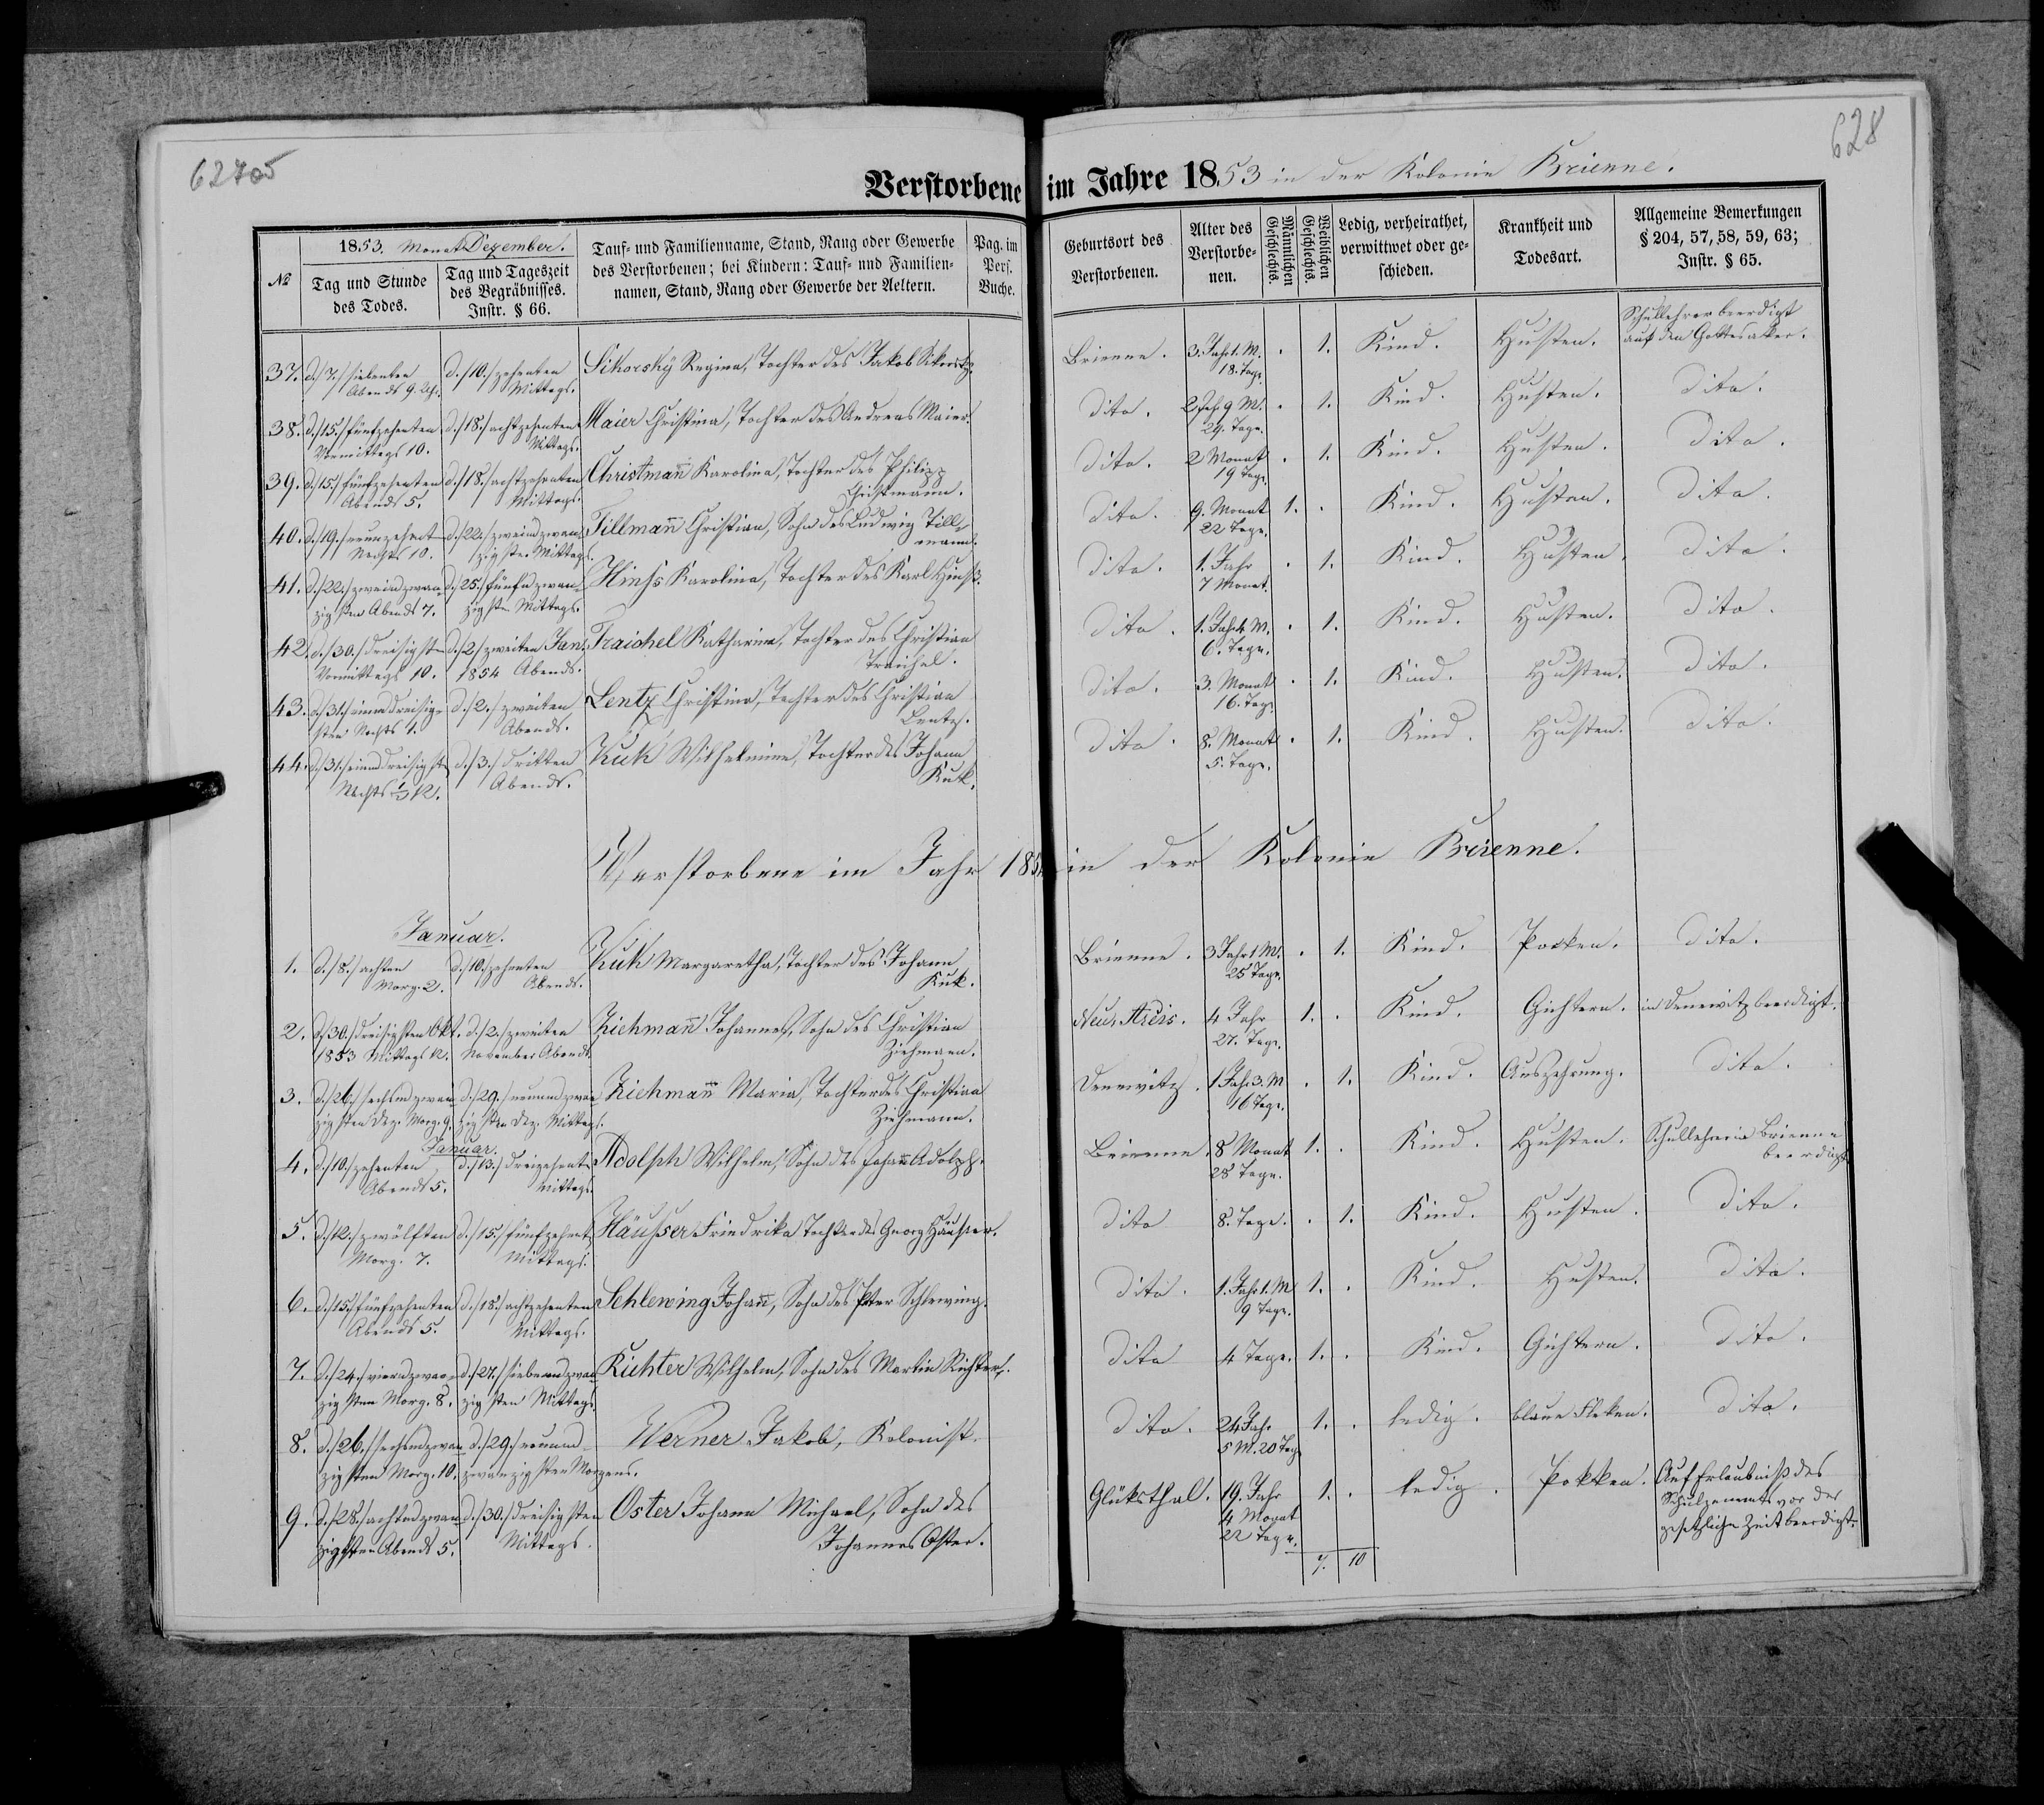 627 os
628
Verstorbene im Jahre 1853 in der Kolonie Brienne.
№
1853. Monat Dezember.
Tag und Stunde des Todes.
Tag und Tageszeit des Begräbnisses. Instr. § 66.
Tauf- und Familienname, Stand, Rang oder Gewerbe
des Verstorbenen; bei Kindern: Tauf- und Familien-
namen, Stand, Rang oder Gewerbe der Aeltern.
Pag. im Pers. Buche.
Geburtsort des Verstorbenen.
Alter des Verstorbe-nen.
Männlichen Geschlechts.
Weiblichen Geschlechts.
Ledig, verheirathet, verwittwet oder ge-schieden.
Krankheit und Todesart.
Allgemeine Bemerkungen § 204, 57, 58, 59, 63; Instr. § 65.
37. d./7./siebenten d./10./zehenten Sikorsky Regina, Tochter des Jakob Sikorsky Brienne. 3. Jahr 1. M. . 1. Kind. Husten. Schullehrer beerdigt
Abends 9. Uhr. Mittags. 18. Tage. auf den Gottesaker.
38. d./15./fünfzehenten d./18./achtzehenten Maier Christina, Tochter des Andreas Maier. dito. 2 Jah. 9 M. . 1. Kind. Husten. dito.
Vormittags 10. Mittags. 29. Tage.
39. d./15./fünfzehenten d./18./achtzehenten Christmañ Karolina, Tochter des Philipp dito. 2 Monat . 1. Kind. Husten. dito.
Abends 5. Mittags. Christmann. 19 Tage.
40. d./19./neunzehent d./22./zweindzwan- Tillmañ Christian, Sohn des Ludwig Till- dito. 9. Monat 1. . Kind. Husten. dito.
Nachts 10. zigsten Mittags. mann. 22 Tage.
41. d./22./zweindzwan- d./25./fünfndzwan- Hinss Karolina, Tochter des Karl Hinß. dito. 1. Jahr . 1. Kind. Husten. dito.
zigsten Abends 7. zigsten Mittags. 7 Monat.
42. d./30./dreisigsten d./2/zweiten Jan. Traichel Katharina, Tochter des Christian dito. 1. Jah. 4 M. . 1. Kind. Husten. dito.
Vormittags 10. 1854 Abends. Traichel. 6. Tage.
43. d./31./einunddreisig- d./2./zweiten Lentz Christina, Tochter des Christian dito. 3. Monat . 1. Kind. Husten. dito.
sten Nachts 1. Abends. Lentz. 16. Tage
44. d./31./einunddreisigst d./3./dritten Kuk Wilhelmine, Tochter des Johann dito. 8. Monat . 1. Kind. Husten. dito.
Nachts ½ 12. Abends. Kuk. 5. Tage.
Verstorbene im Jahr 1854 in der Kolonie Brienne.
Januar.
1. d./8./achten d./10./zehenten Kuk Margaretha, Tochter des Johann Brienne. 3 Jahr 1 M. . 1. Kind. Pocken. dito.
Morg. 2. Abends. Kuk. 25 Tage.
2. d./30./dreisigsten Okt. d./2./zweiten Ziehmañ Johannes, Sohn des Christian Neu-Arcis. 4 Jahr 1. . Kind. Gichtern. in Denewitz beerdigt.
1853 Mittags 12. November Abends. Ziehmann. 27. Tage.
3. d./26./sechsndzwan- d./29./neunundzwan- Ziehmañ Maria, Tochter des Christian Denewitz. 1 Jah. 3. M . 1. Kind. Auszehrung. dito.
zigsten Dez. Morg. 9. zigsten Dez. Mittags. Ziehmann. 16 Tage.
Januar.
4. d./10./zehenten d./13./dreizehent Adolph Wilhelm, Sohn des Johañ Adolph. Brienne. 8 Monat 1. . Kind. Husten. Schullehrer in Brienne
Abends 5. Mittags. 28 Tage. beerdigt
5. d./12./zwölften d./15./fünfzehent Häusser Friedrika Tochter des Georg Häusser. dito 8. Tage. . 1. Kind. Husten. dito.
Morg. 7. Mittags.
6. d./15./fünfzehenten d./18./achtzehenten Schlewing Johañ, Sohn des Peter Schlewing. dito. 1. Jahr 1. M 1. . Kind. Husten. dito.
Abends 5. Mittags. 9 Tage.
7. d./24./vierndzwan- d./27./siebenndzwan Richter Wilhelm, Sohn des Martin Richter. dito 4 Tage. 1. . Kind. Gichtern. dito.
zigsten Morg. 8. zigsten Mittags.
8. d./26./sechsndzwan d./29./neunund- Werner Jakob, Kolonist. dito. 24 Jahr 1. . ledig. blaue Fleken. dito.
zigsten Morg. 10. zwanzigsten Morgens. 5 M. 20 Tag
9. d./28./achtndzwan d./30./dreisigsten Oster Johann Michael, Sohn des Glüksthal. 19. Jahr 1. . ledig. Pokken. Auf Erlaubniß des
zigsten Abends 5. Mittags. Johannes Oster. 4 Monat Schulzenamts vor der
22 Tage. gesetzliche Zeit beerdigt.
7. 10